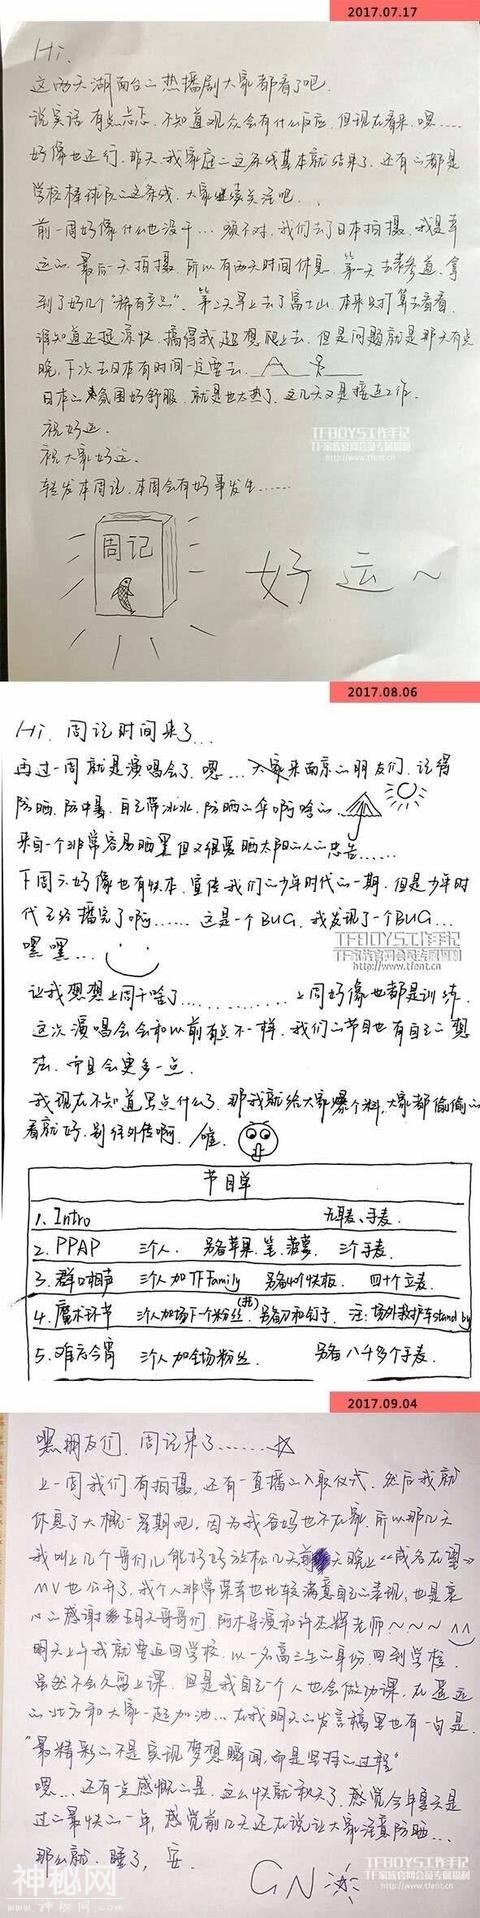 2017.07.17
Hi.
这两天湖南台の热播剧大家都看了吧.
说实话 有点忐忑. 不知道观众会有什么反应. 但现在看来. 嗯……
好像也还行. 昨天我家庭の这条线基本就结束了. 还有の都是
学校棒球队の这条线. 大家继续关注吧.
前一周好像什么也没干… 额不对. 我们去了日本拍摄. 我是幸
运の. 最后一天拍摄. 所以有两天时间休息. 第一天去表参道. 拿
到了好几个"稀有产品". 第二天早上去了富士山. 本来只打算去看看.
谁知道还挺凉快. 搞得我超想爬上去. 但是问题就是那天有点
晚. 下次去日本有时间一定要去.
日本の氛围好舒服. 就是也太热了. 这几天又是接连工作.
祝好运.
祝大家好运.
转发本周记. 本周会有好事发生……
周记
好运~
TFBOYS工作手记
TF家族官网会员专属福利
http://www.tfent.cn
2017.08.06
Hi. 周记时间来了…
再过一周就是演唱会了. 嗯… 大家来南京の朋友们. 记得
防晒. 防中暑. 自己带冰水. 防晒の伞啊啥の…
来自一个非常容易晒黑但又很爱晒太阳の人の忠告……
下周六好像也有快本. 宣传我们の少年时代の一期. 但是少年时
代已经播完了啊…… 这是一个BUG. 我发现了一个BUG…
嘿嘿…
TFBOYS工作手记
TF家族官网会员专属福利
http://www.tfent.cn
让我想想上周干啥了………… 上周好像也都是训练.
这次演唱会会和以前有点不一样. 我们の节目也有自己の想
法. 而且会更多一点.
我现在不知道写点什么了. 那我就给大家爆个料. 大家都偷偷の
看就好. 别往外传啊. 嘘.
节目单
1. Intro 无耳麦、手麦.
2. PPAP 三个人. 另备苹果. 笔. 菠萝. 三个手麦.
3. 群口相声 三个人加TF Family 另备40个快板. 四十个立麦.
4. 魔术环节 三个人加场下一个粉丝(托) 另备刀和钉子. 注: 场外救护车stand by
5. 难忘今宵 三个人加全场粉丝. 另备八千多个手麦.
2017.09.04
嘿朋友们. 周记来了……☆
上一周我们有拍摄. 还有一直播の入取仪式. 然后我就
休息了大概一星期吧. 因为我爸妈也不在家. 所以那几天
我叫上几个哥们儿能好好放松几天 前天晚上《成名在望》
MV也公开了. 我个人非常荣幸也比较满意自己の表现. 也是衷
心の感谢五月天哥哥们. 阿木导演和许杰辉老师~~~~^^
明天上午我就要返回学校. 以一名高三生の身份. 回到学校.
虽然不会久留上课. 但是我自己一个人也会做功课. 在遥远
の北方和大家一起加油… 在我明天の发言稿里也有一句是.
"最精彩の不是实现梦想瞬间. 而是坚持の过程"
嗯… 还有点感慨の是. 这么快就秋天了. 感觉今年夏天是
过の最快の一年. 感觉前几天还在说让大家注意防晒…
那么就. 睡了, 安.
GN
TFBOYS工作手记
TF家族官网会员专属福利
http://www.tfent.cn
神秘网